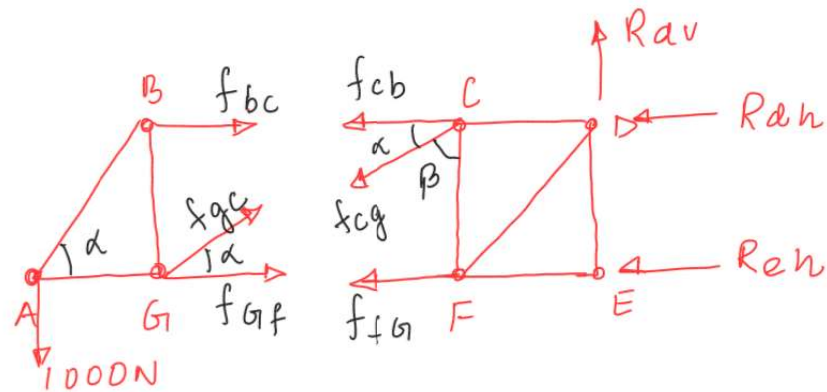 Rav
B
fbc
fcb
C
D
Rdh
α
β
fgc
fcg
α
α
Reh
A
G
fGf
ffG
F
E
1000N